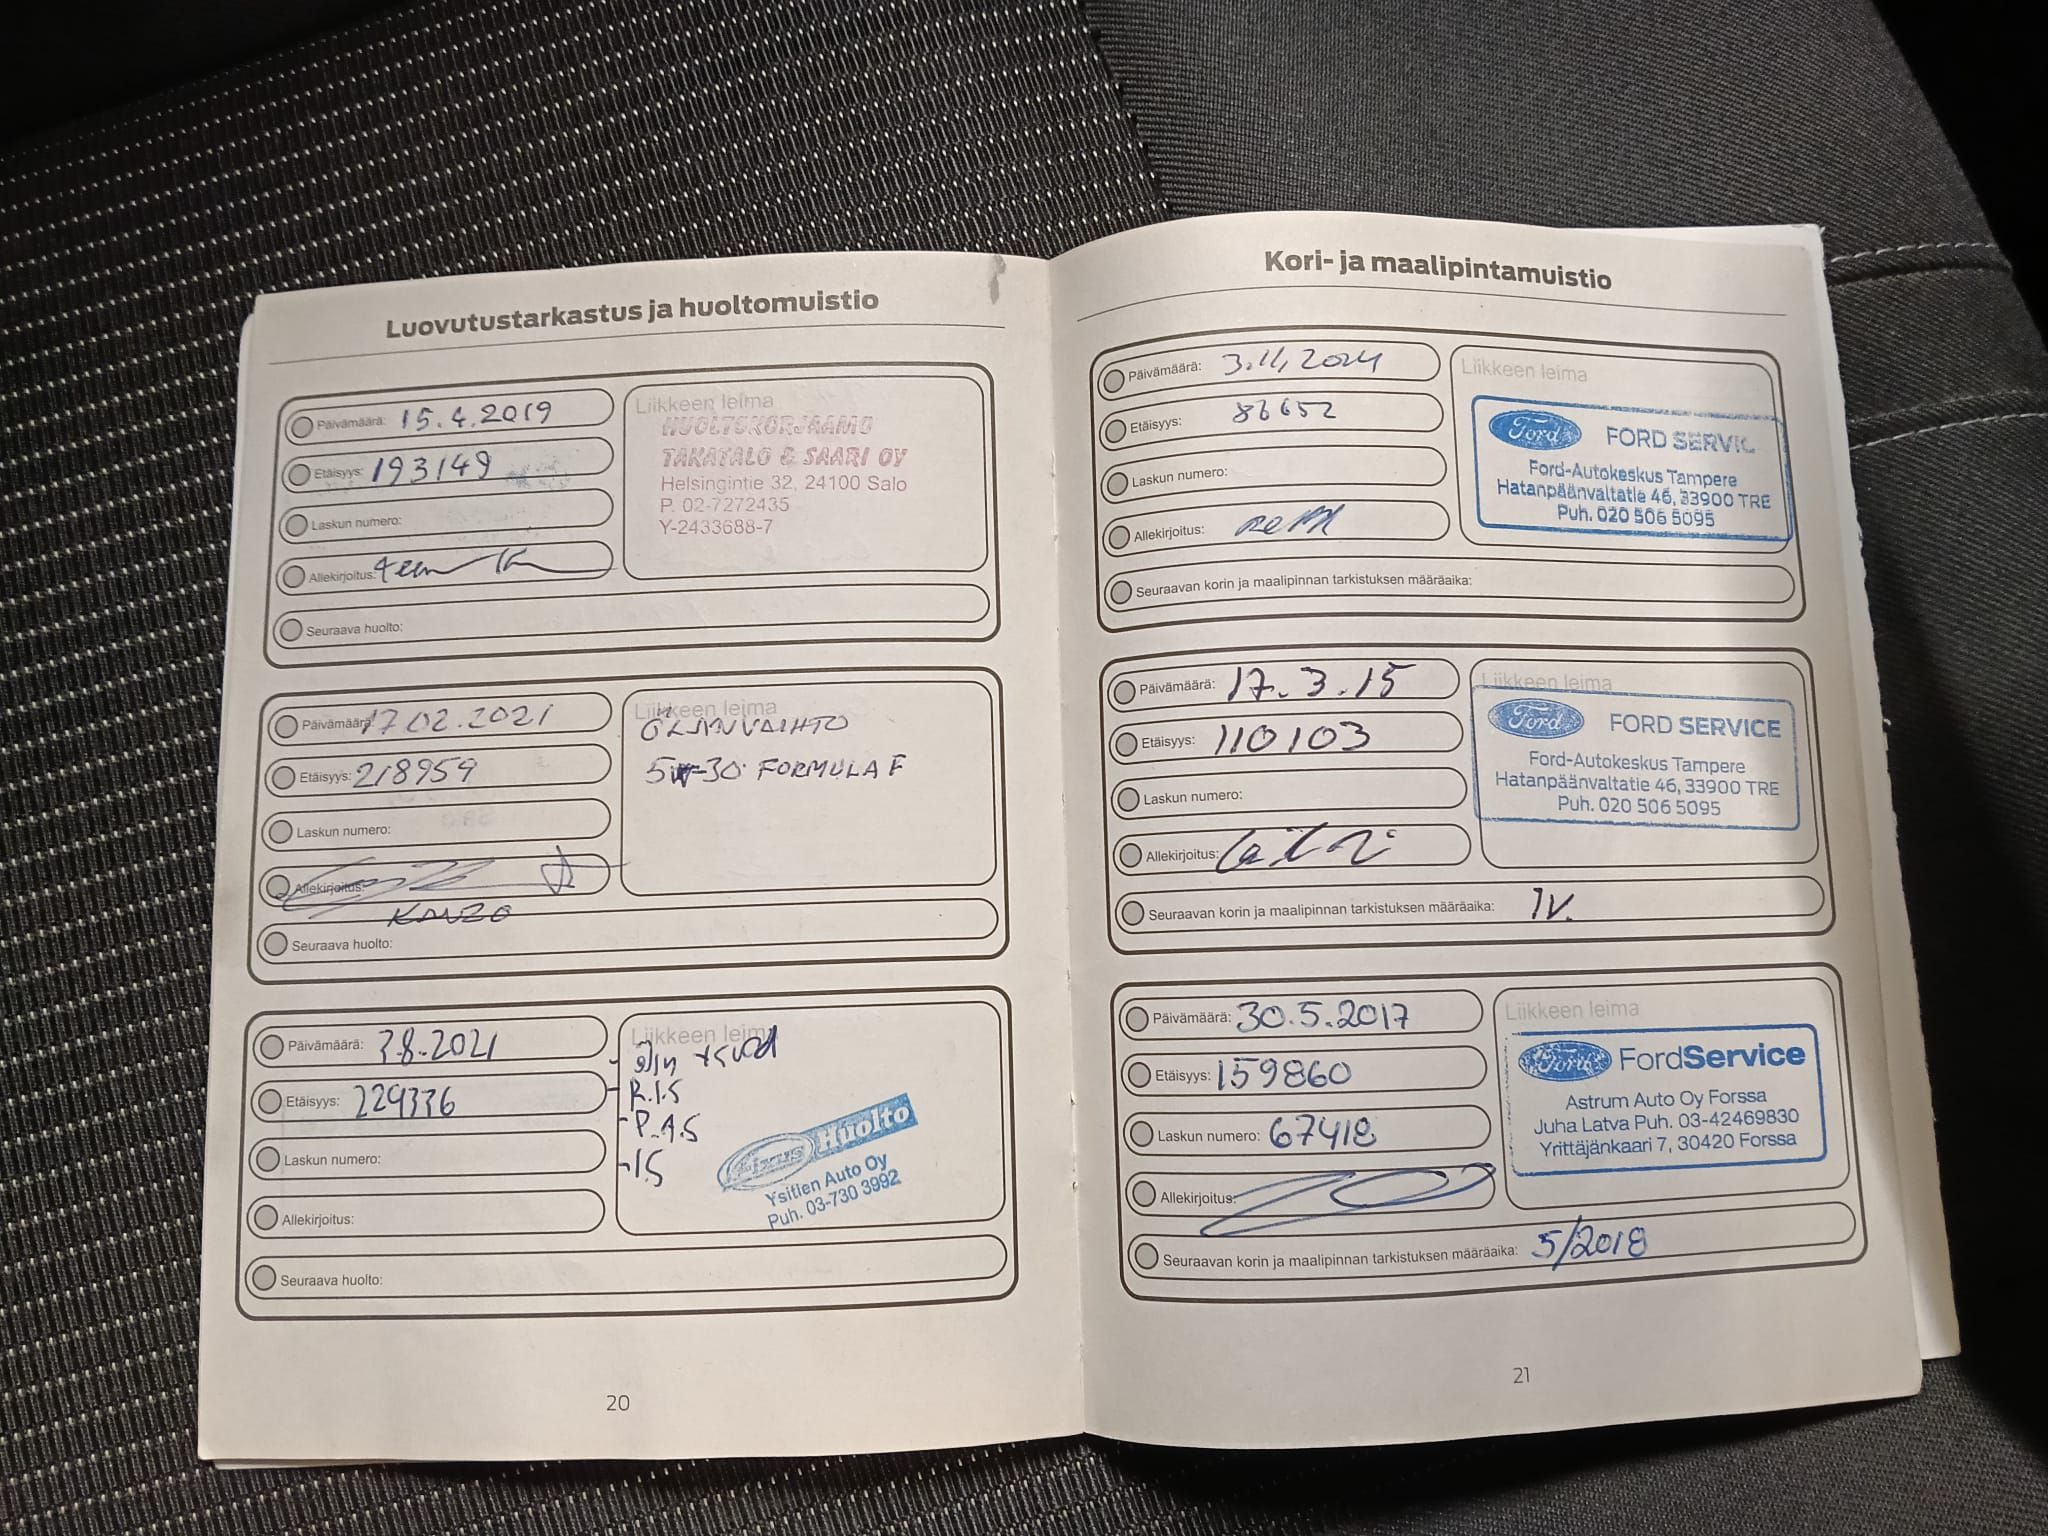 Luovutustarkastus ja huoltomuistio
Päivämäärä: 15.4.2019
Etäisyys: 193149
Laskun numero:
Allekirjoitus:
Seuraava huolto:
Liikkeen leima
HUOLTOKORJAAMO
TAKATALO & SAARI OY
Helsingintie 32, 24100 Salo
P. 02-7272435
Y-2433688-7
Päivämäärä: 17.02.2021
Etäisyys: 218959
Laskun numero:
Allekirjoitus:
Seuraava huolto:
Liikkeen leima
ÖLJYNVAIHTO
5W-30 FORMULA F
Päivämäärä: 3.8.2021
Etäisyys: 229336
Laskun numero:
Allekirjoitus:
Seuraava huolto:
Liikkeen leima
-R.I.S
-P.A.S
-I.S
Fixus Huolto
Ysitien Auto Oy
Puh. 03-730 3992
20
Kori- ja maalipintamuistio
Päivämäärä: 3.11.2014
Etäisyys: 86652
Laskun numero:
Allekirjoitus:
Seuraavan korin ja maalipinnan tarkistuksen määräaika:
Liikkeen leima
Ford FORD SERVIC
Ford-Autokeskus Tampere
Hatanpäänvaltatie 46, 33900 TRE
Puh. 020 506 5095
Päivämäärä: 17.3.15
Etäisyys: 110103
Laskun numero:
Allekirjoitus:
Seuraavan korin ja maalipinnan tarkistuksen määräaika: 1v.
Liikkeen leima
Ford FORD SERVICE
Ford-Autokeskus Tampere
Hatanpäänvaltatie 46, 33900 TRE
Puh. 020 506 5095
Päivämäärä: 30.5.2017
Etäisyys: 159860
Laskun numero: 67418
Allekirjoitus:
Seuraavan korin ja maalipinnan tarkistuksen määräaika: 5/2018
Liikkeen leima
Ford FordService
Astrum Auto Oy Forssa
Juha Latva Puh. 03-42469830
Yrittäjänkaari 7, 30420 Forssa
21